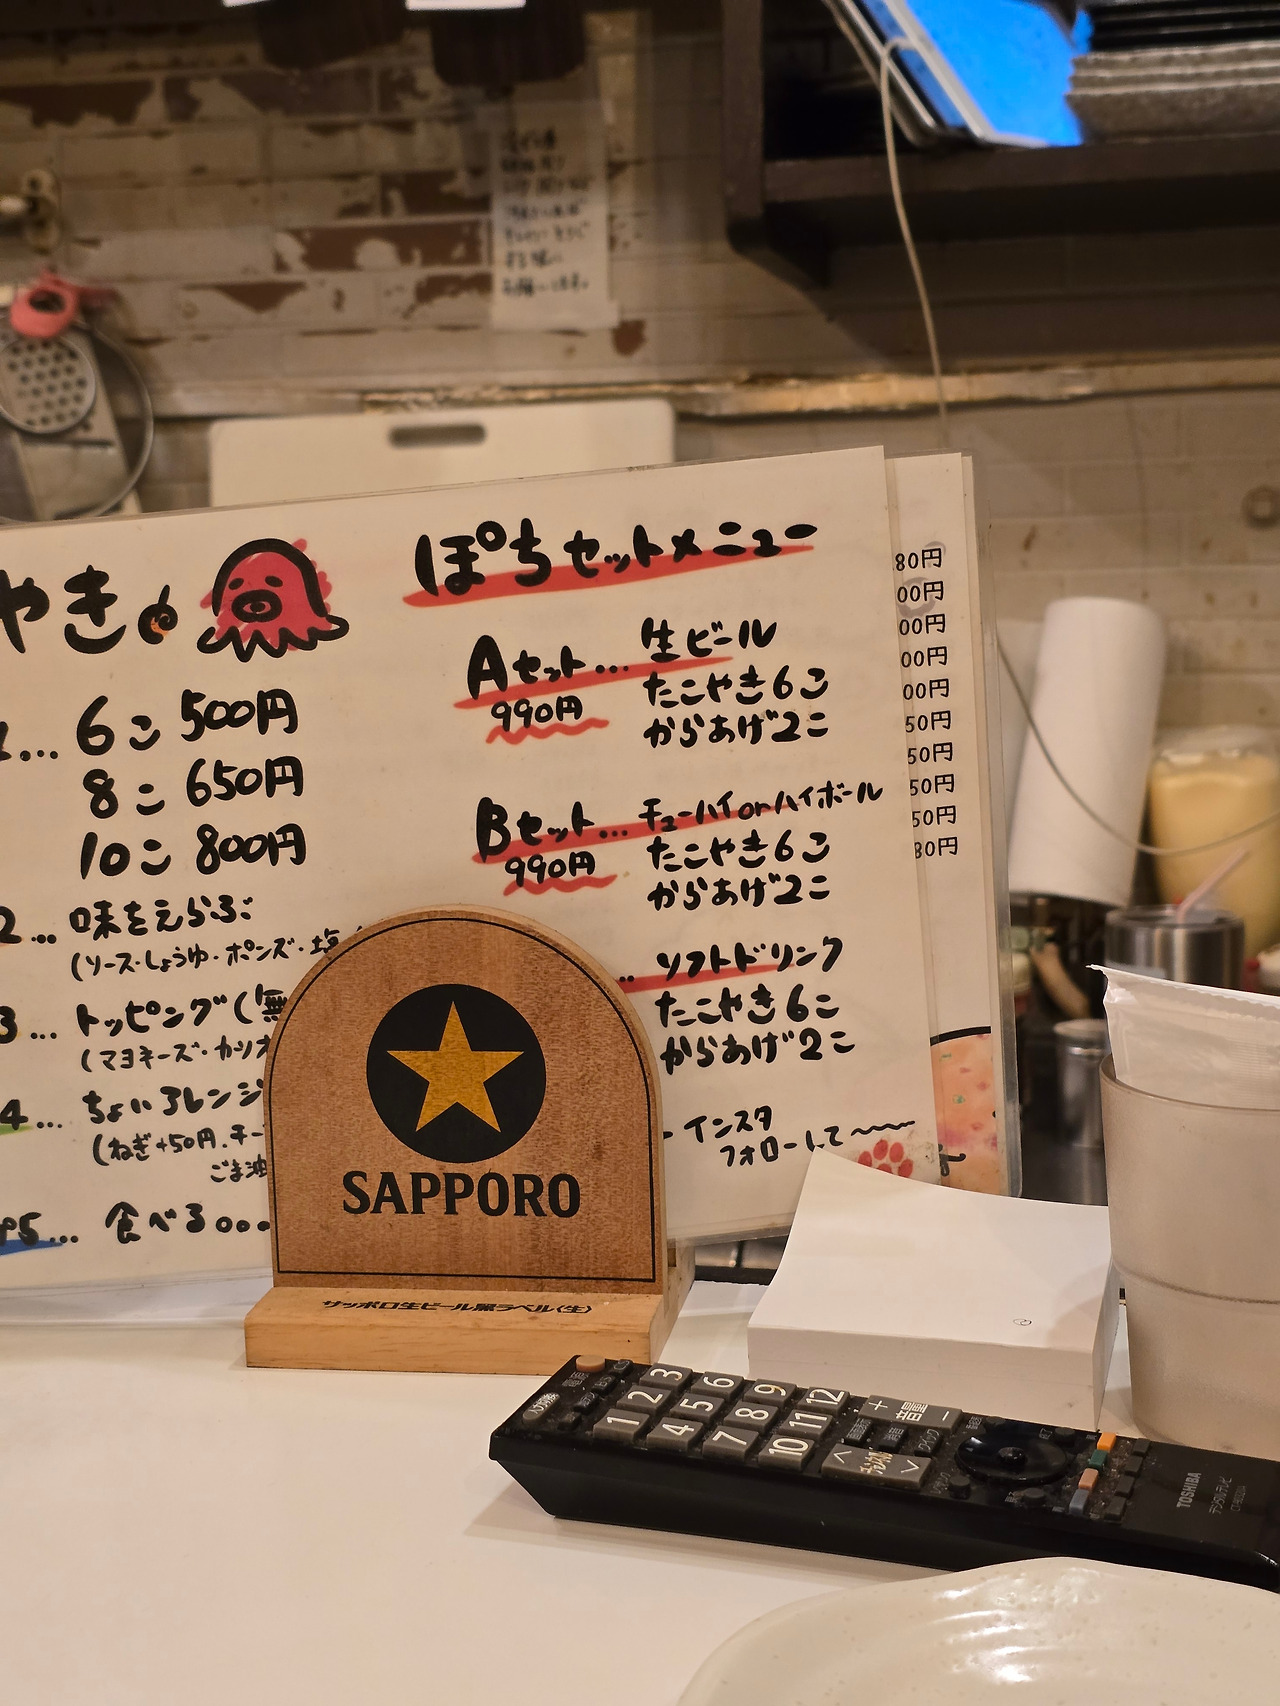 やき
6こ 500円
8こ 650円
10こ 800円
2... 味をえらぶ
(ソース・しょうゆ・ポンズ・塩
3... トッピング(無
(マヨネーズ・カツオ
4... ちょいアレンジ
(ねぎ+50円・チー
ごま油
5... 食べる
ぽちセットメニュー
Aセット... 生ビール
990円
たこやき6こ
からあげ2こ
Bセット... チューハイorハイボール
990円
たこやき6こ
からあげ2こ
ソフトドリンク
たこやき6こ
からあげ2こ
インスタ
フォローしてー
80円
00円
00円
00円
00円
50円
50円
50円
50円
80円
SAPPORO
サッポロ生ビール黒ラベル〈生〉
1 2 3
4 5 6
7 8 9
10 11 12
+ 音量 -
TOSHIBA
デジタルテレビ